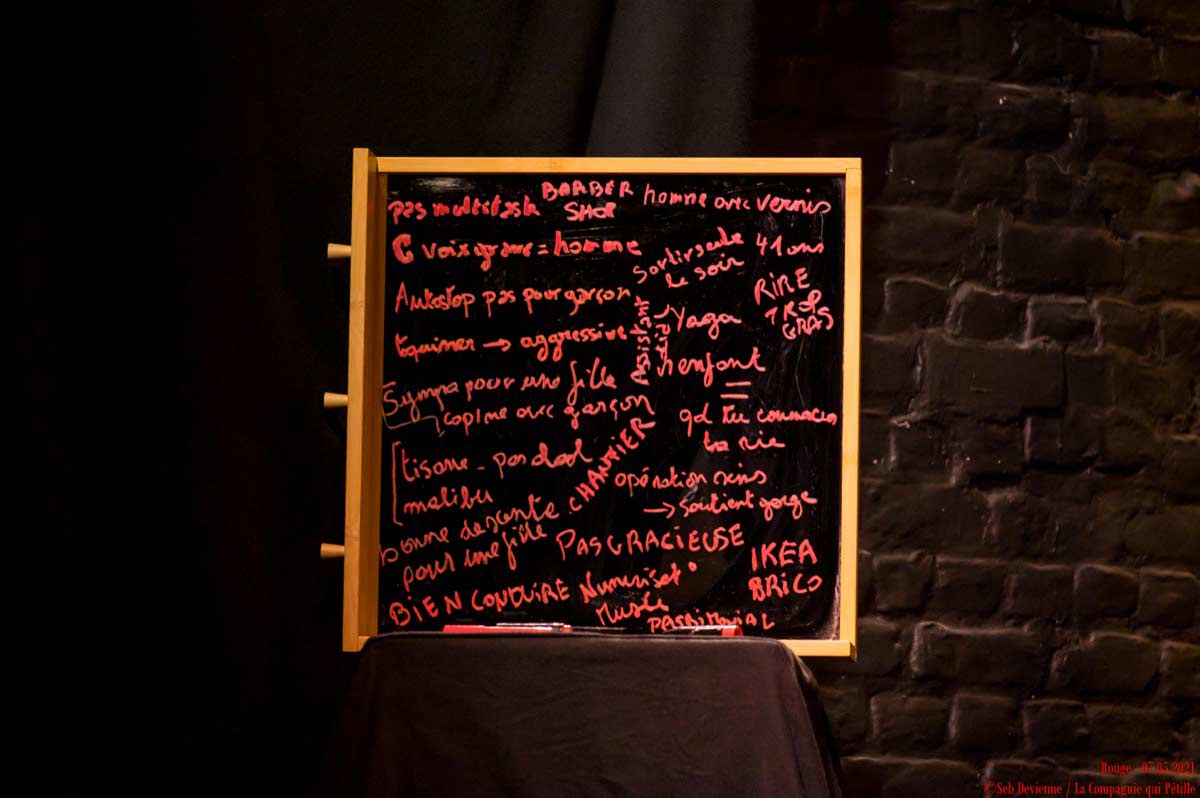 BARBER
SHOP
pas multitask
homme avec vernis
C voix grave = homme
Sortir seule
le soir
41 ans
Autostop pas pour garçon
RIRE
TROP
GRAS
Assistant
Yaga
→ aggressive
enfant
=
qd tu commences
ta vie
Sympa pour une fille
copine avec garçon
CHANTIER
tisane - pas d'alcool
malibu
opération seins
→ soutient gorge
bonne descente
pour une fille
PAS GRACIEUSE
IKEA
BRICO
BIEN CONDUIRE
Musée
PATRIMONIAL
Rouge - 07.05.2021
©Seb Devienne / La Compagnie qui Pétille